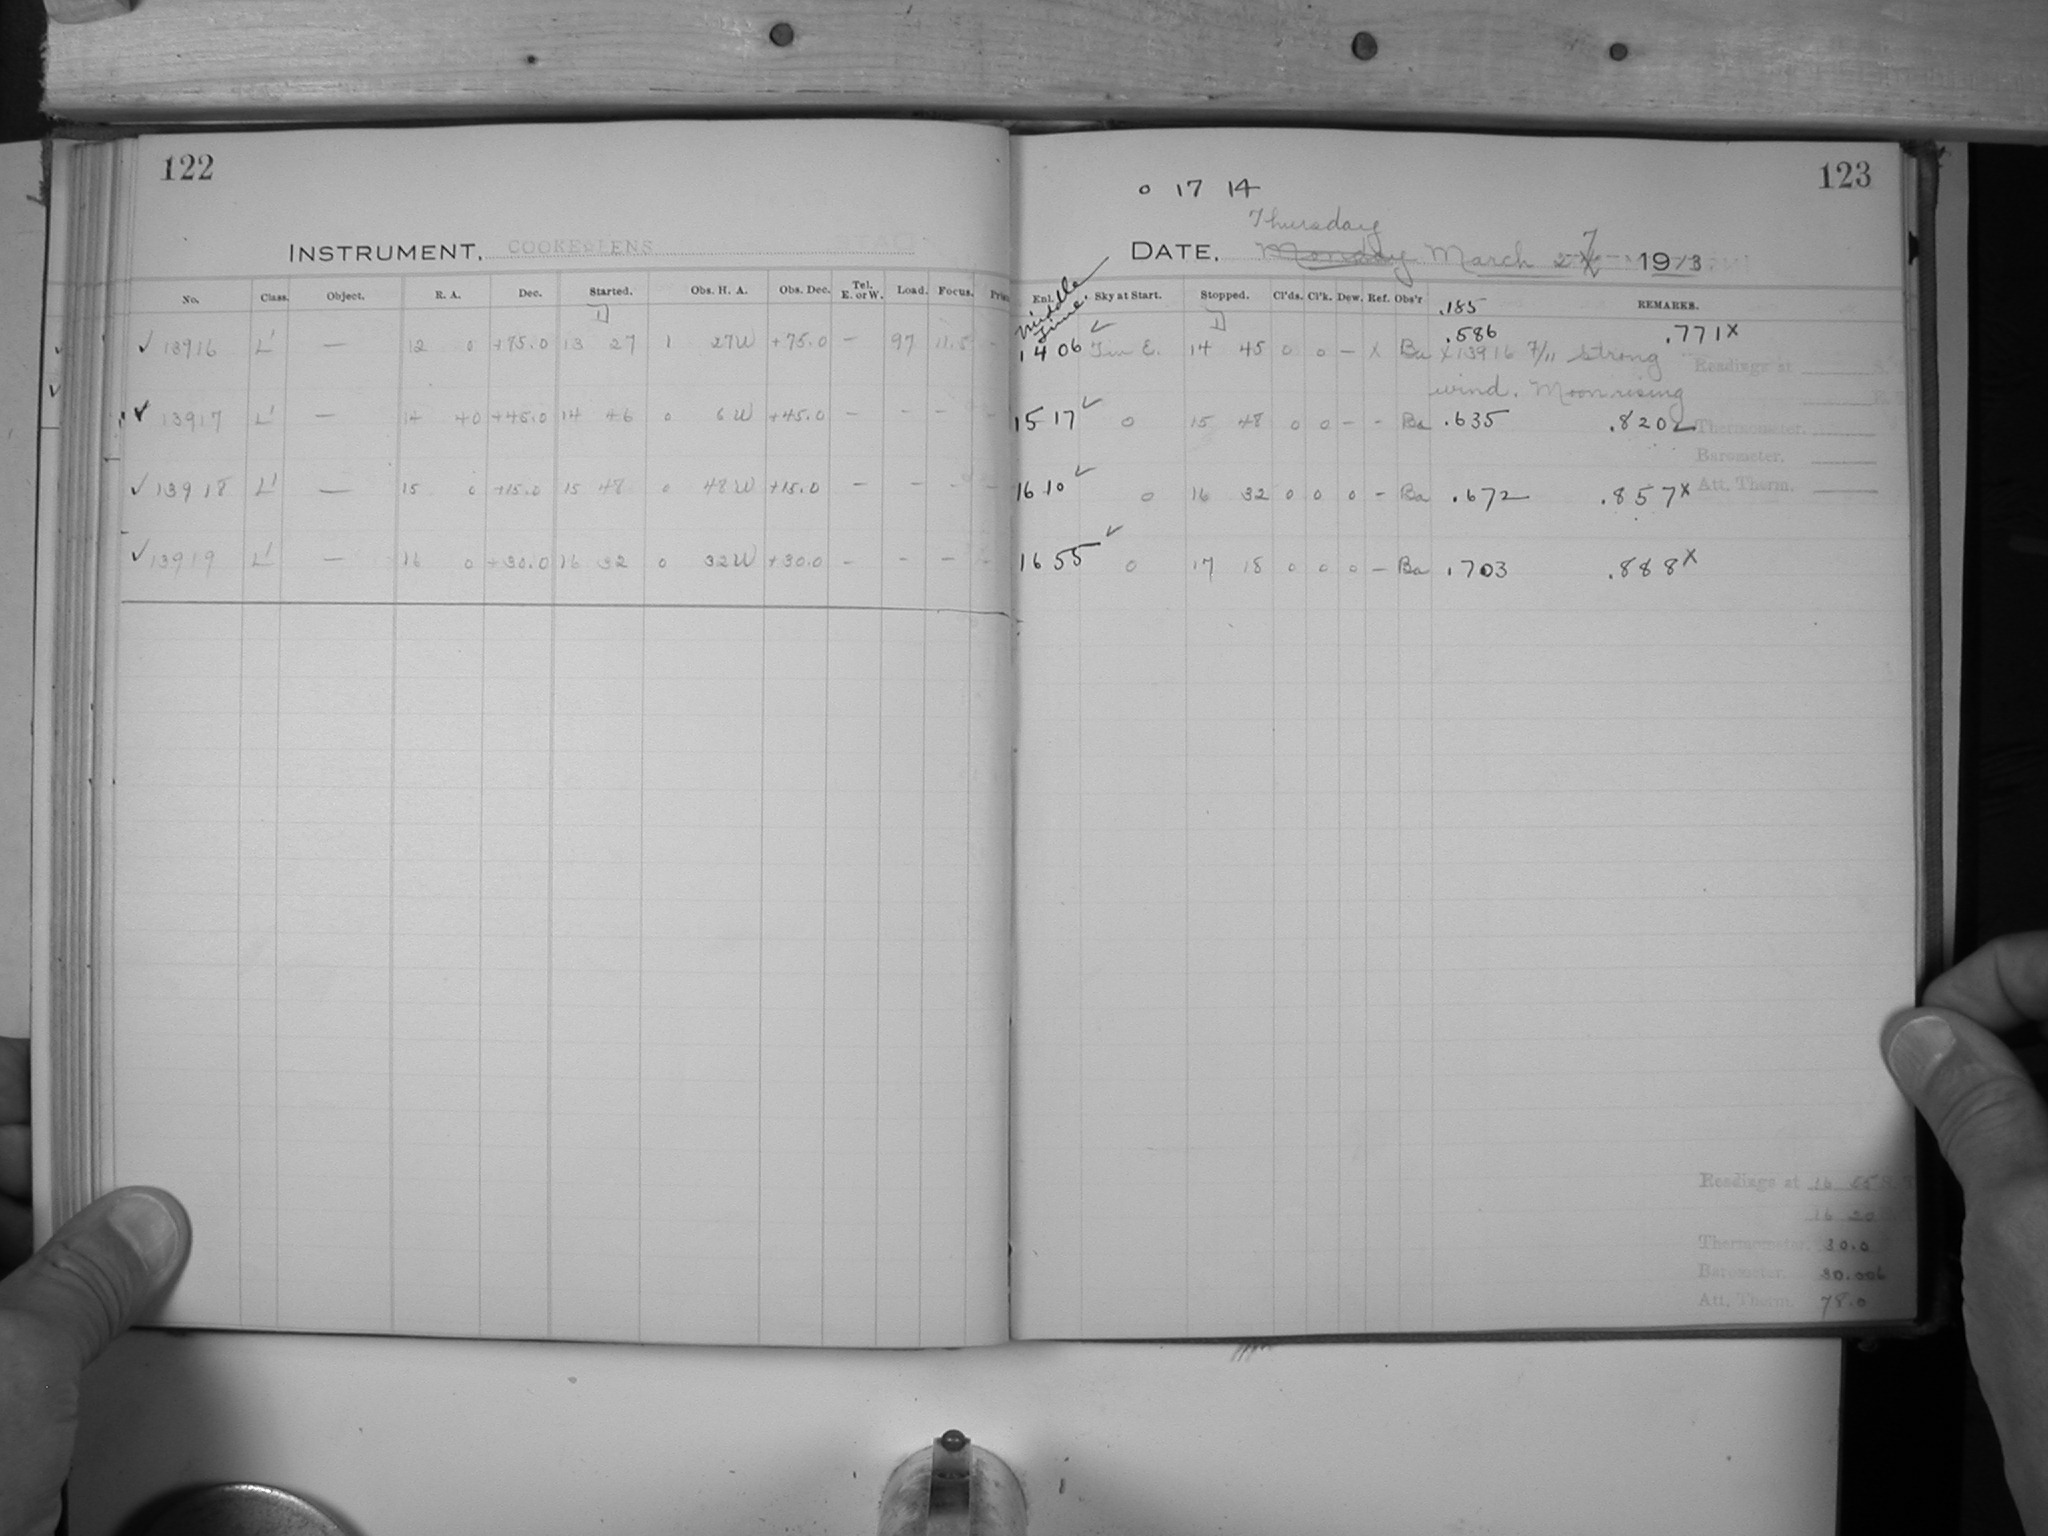 122
INSTRUMENT, COOKE LENS
No. Class. Object. R. A. Dec. Started. Obs. H. A. Obs. Dec. Tel. E. or W. Load. Focus.
✓ 13916 L' — 12 0 +75.0 13 27 1 27W +75.0 — 97 11.5 –
✓ 13917 L' — 14 40 +45.0 14 46 0 6W +45.0 — – – –
✓ 13918 L' — 15 0 +15.0 15 48 0 48W +15.0 — – – –
✓ 13919 L' — 16 0 +30.0 16 32 0 32W +30.0 – – – –
123
0 17 14
Thursday
DATE, Monday March 27 1913
Middle Time
Enl. Sky at Start. Stopped. Cl'ds. Cl'k. Dew. Ref. Obs'r REMARKS.
.185
.586 .771x
14 06 ✓ 14 45 0 0 – x Ba x13916 7/11 strong
wind. Moon rising
15 17 ✓ 0 15 48 0 0 – – Ba .635 .820
16 10 ✓ 0 16 32 0 0 0 – Ba .672 .857x
16 55 ✓ 0 17 18 0 0 0 – Ba .703 .888x
Readings at
Thermometer.
Barometer.
Att. Therm.
Readings at 16 S.T.
16 20
Thermometer. 30.0
Barometer. 30.006
Att. Therm. 78.0